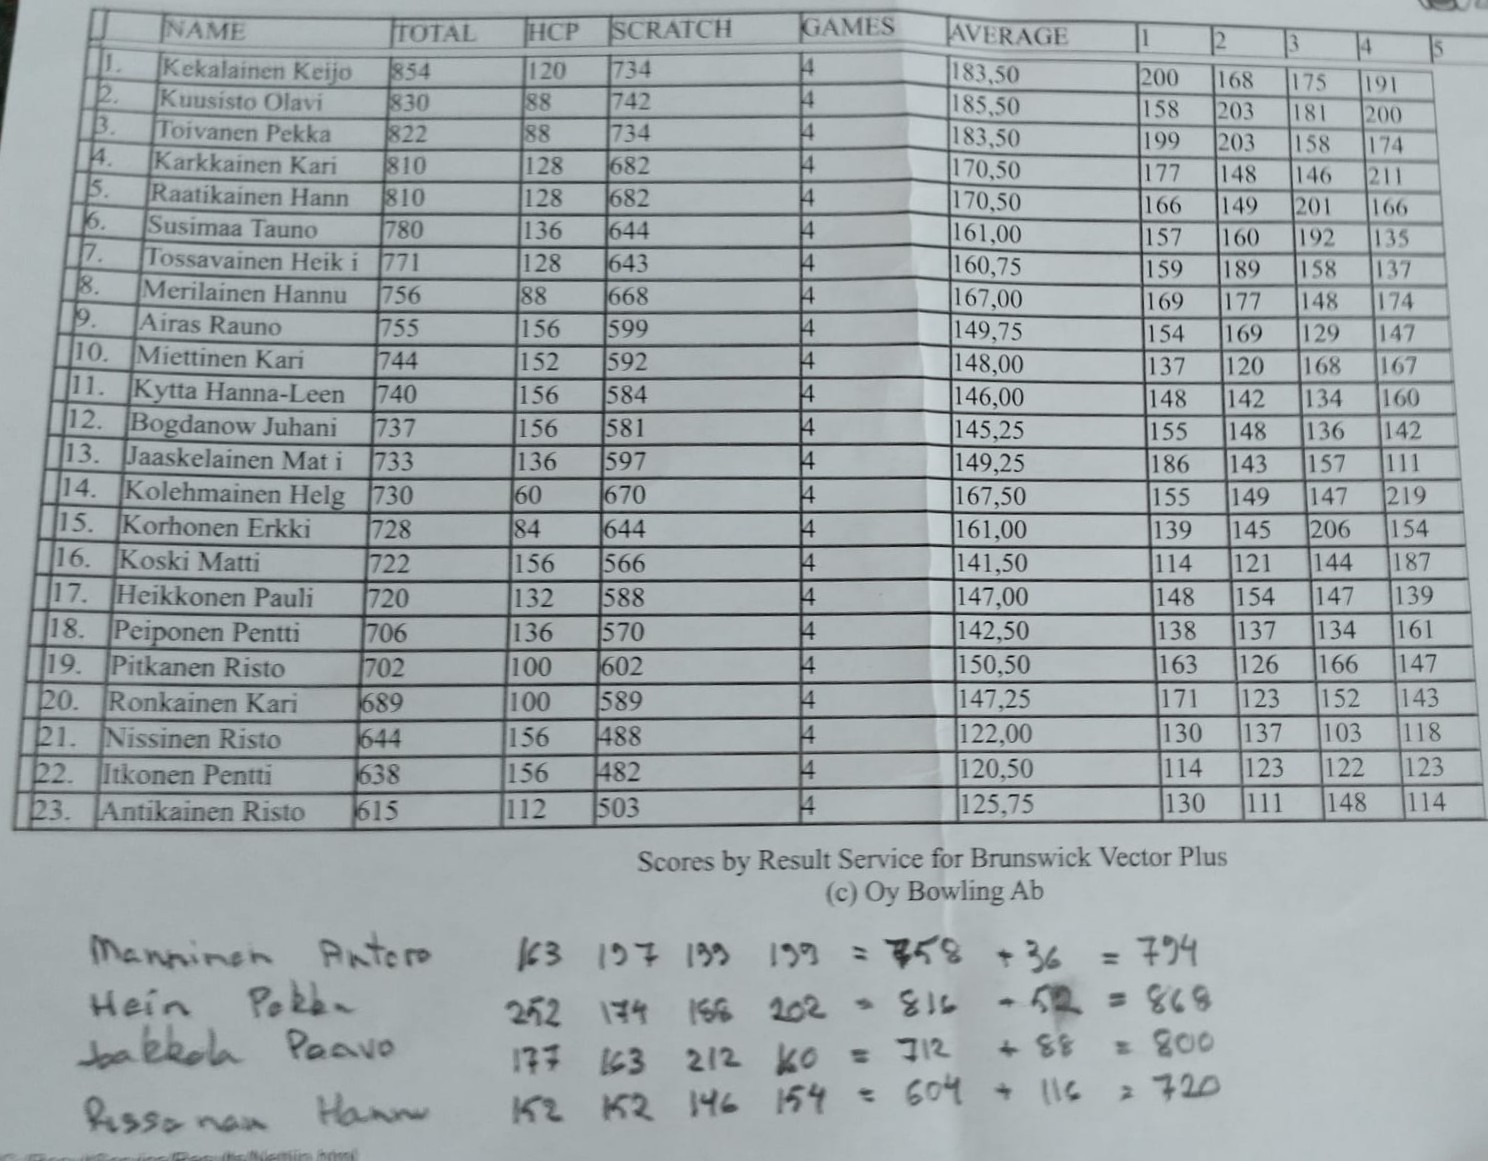 NAME TOTAL HCP SCRATCH GAMES AVERAGE 1 2 3 4 5
1. Kekalainen Keijo 854 120 734 4 183,50 200 168 175 191
2. Kuusisto Olavi 830 88 742 4 185,50 158 203 181 200
3. Toivanen Pekka 822 88 734 4 183,50 199 203 158 174
4. Karkkainen Kari 810 128 682 4 170,50 177 148 146 211
5. Raatikainen Hann 810 128 682 4 170,50 166 149 201 166
6. Susimaa Tauno 780 136 644 4 161,00 157 160 192 135
7. Tossavainen Heik i 771 128 643 4 160,75 159 189 158 137
8. Merilainen Hannu 756 88 668 4 167,00 169 177 148 174
9. Airas Rauno 755 156 599 4 149,75 154 169 129 147
10. Miettinen Kari 744 152 592 4 148,00 137 120 168 167
11. Kytta Hanna-Leen 740 156 584 4 146,00 148 142 134 160
12. Bogdanow Juhani 737 156 581 4 145,25 155 148 136 142
13. Jaaskelainen Mat i 733 136 597 4 149,25 186 143 157 111
14. Kolehmainen Helg 730 60 670 4 167,50 155 149 147 219
15. Korhonen Erkki 728 84 644 4 161,00 139 145 206 154
16. Koski Matti 722 156 566 4 141,50 114 121 144 187
17. Heikkonen Pauli 720 132 588 4 147,00 148 154 147 139
18. Peiponen Pentti 706 136 570 4 142,50 138 137 134 161
19. Pitkanen Risto 702 100 602 4 150,50 163 126 166 147
20. Ronkainen Kari 689 100 589 4 147,25 171 123 152 143
21. Nissinen Risto 644 156 488 4 122,00 130 137 103 118
22. Itkonen Pentti 638 156 482 4 120,50 114 123 122 123
23. Antikainen Risto 615 112 503 4 125,75 130 111 148 114
Scores by Result Service for Brunswick Vector Plus
(c) Oy Bowling Ab
Manninen Antero 163 197 199 199 = 758 + 36 = 794
Hein Pekka 252 174 188 202 = 816 + 52 = 868
Jakkola Paavo 177 163 212 160 = 712 + 88 = 800
Hannu 152 152 146 154 = 604 + 116 = 720